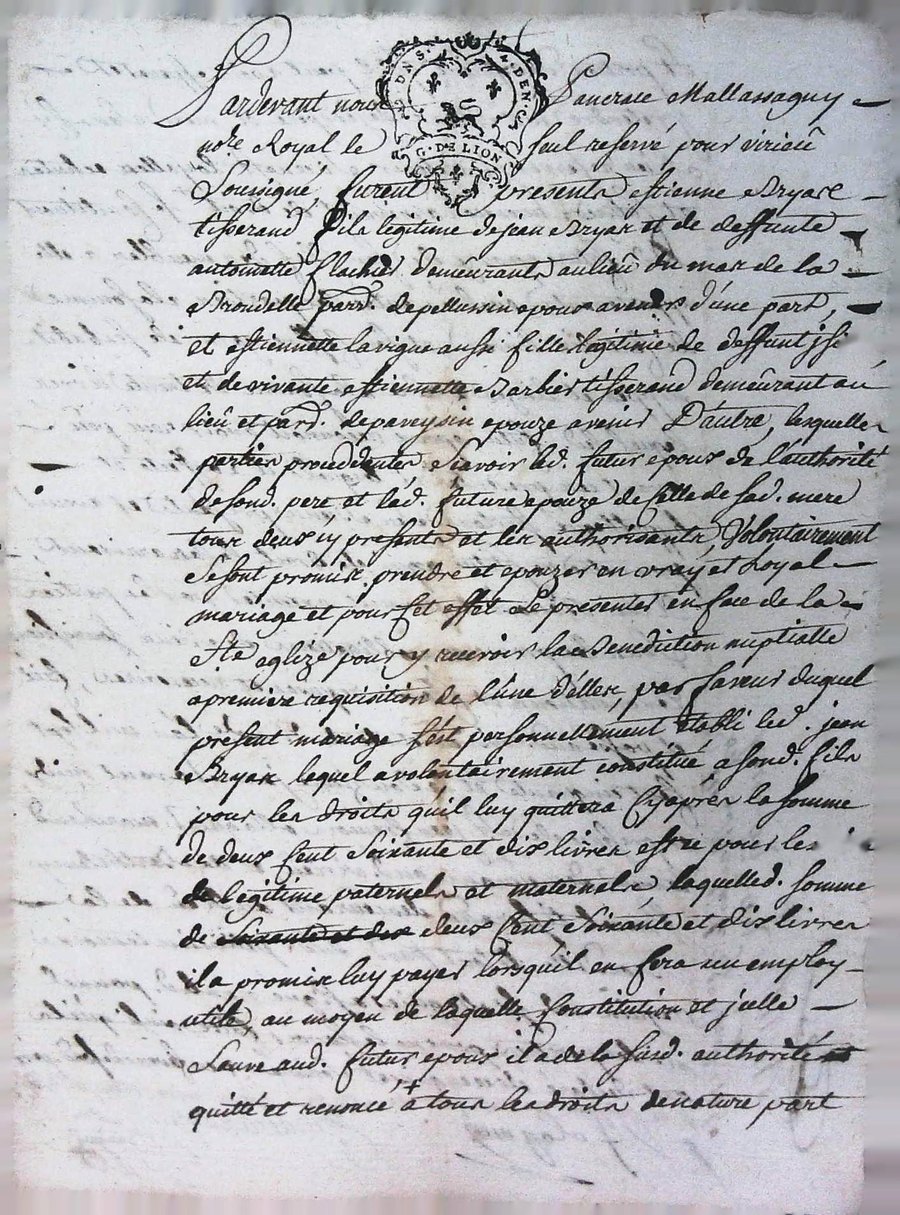 2. DEN.
G. DE LION
Pardevant nous Pancrace Mallassagny
note Royal le seul reservé pour virieû
Soussigné, furent presents estienne Bryas
tisserand fils legitime de jean Bryas et de deffunte
antoinette flachier demeurants au lieû du mas de la
Brondelle parr. de pellussin epoux avenir d'une part,
et estiennette lavigne aussi fille legitime de deffunt jsé
et de vivante estiennette Barbier tisserand demeurant au
lieû et parr. de paveysin epouze avenir D'autre, lesquelles
parties procedentes scavoir led. futur epoux de l'authorité
de sond. pere et lad. future epouze de celle de sad. mere
tous deux icy presents et les authorisants, Volontairement
se sont promis prendre et epouzer en vray et loyal
mariage et pour cet effet se presenter en face de la
Ste eglize pour y recevoir la Benediction nuptialle
a premiere requisition de l'une d'elles, par faveur duquel
present mariage s'est personnellement etabli led. jean
Bryas lequel a volontairement constitué a sond. fils
pour les droits qu'il luy quittera cy après la somme
de deux cent soixante et dix livres et ce pour les
de legitime paternels et maternels, laquelled. somme
de soixante et dix deux cent soixante et dix livres
il a promis luy payer lorsquil en fera un employ
utile, au moyen de laquelle constitution et j'celle
sauve aud. futur epoux il a de la susd. authorité
quitté et renoncé + a tous les droits de nature part